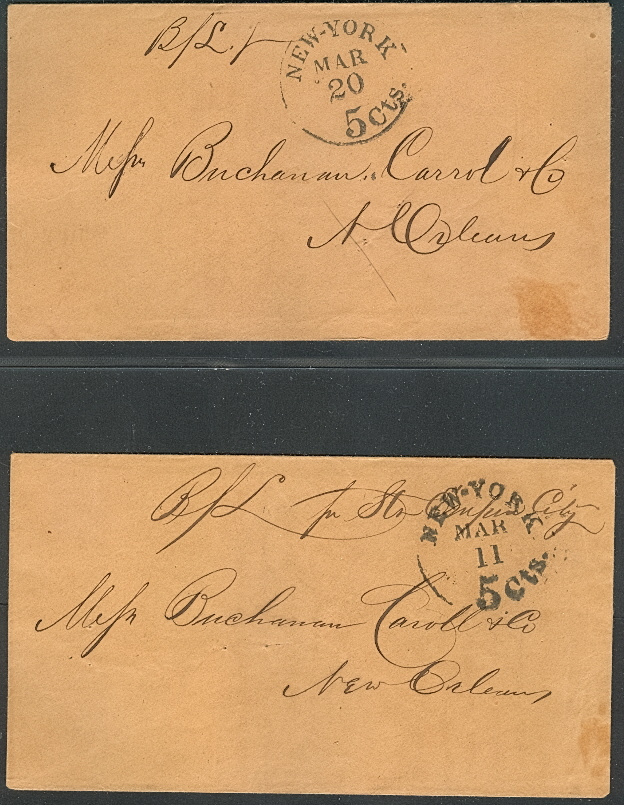 B/L
NEW-YORK
MAR
20
5 cts.
Messrs Buchanan, Carrol & Co
N Orleans
B/L pr Str Empire City
NEW-YORK
MAR
11
5 cts.
Messrs Buchanan Caroll & Co
New Orleans